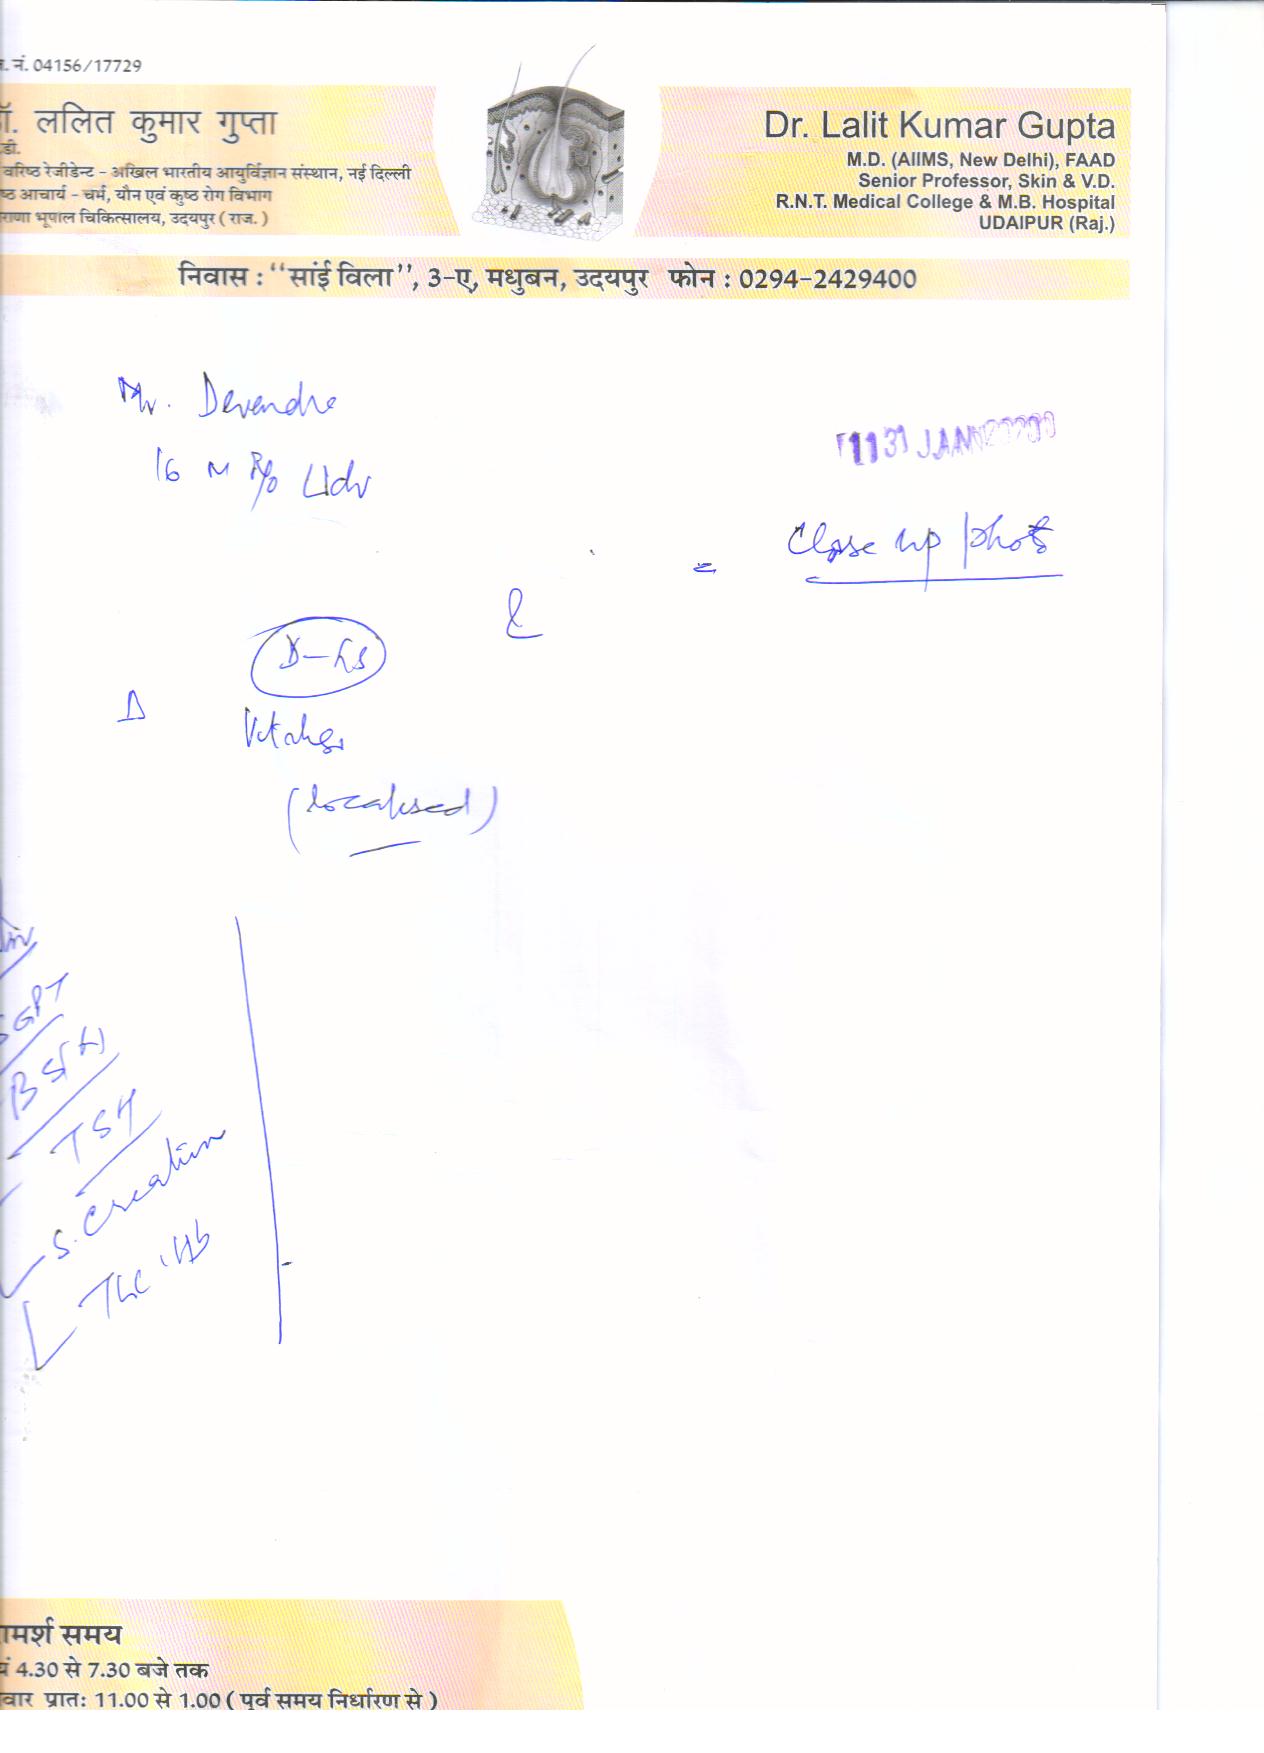 . नं. 04156/17729
ॉ. ललित कुमार गुप्ता
डी.
वरिष्ठ रेजीडेन्ट - अखिल भारतीय आयुर्विज्ञान संस्थान, नई दिल्ली
ष्ठ आचार्य - चर्म, यौन एवं कुष्ठ रोग विभाग
राणा भूपाल चिकित्सालय, उदयपुर ( राज. )
Dr. Lalit Kumar Gupta
M.D. (AIIMS, New Delhi), FAAD
Senior Professor, Skin & V.D.
R.N.T. Medical College & M.B. Hospital
UDAIPUR (Raj.)
निवास : ‘‘सांई विला’’, 3-ए, मधुबन, उदयपुर फोन : 0294-2429400
Mr. Devendra
16 M R/o Udr
31 JAN
Close up photo
Δ
(localised)
SGPT
TSH
S. Creatinin
TLC, Hb
ामर्श समय
यं 4.30 से 7.30 बजे तक
वार प्रातः 11.00 से 1.00 ( पूर्व समय निर्धारण से )